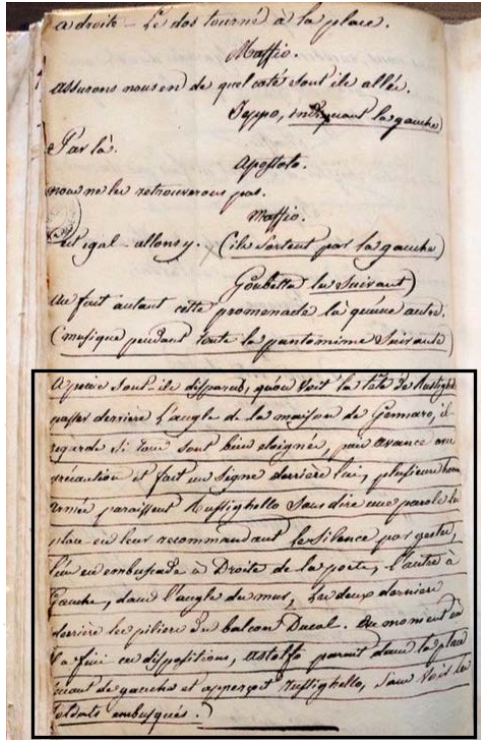 a droite – Le dos tourné à la place.
Maffio.
assurons nous en de quel coté sont ils allés.
Jeppo, indiquant la gauche)
Par là.
Apostolo.
nous ne les retrouverons pas.
Maffio.
C'est egal – allons y. (ils sortent par la gauche)
Goubetta les suivant)
au fait autant cette promenade là qu'une autre.
(musique pendant toute la pantomime suivante)
A peine sont-ils disparus, qu'on voit la tête de Rustighe
passer derrière l'angle de la maison de Gennaro, il
regarde si tous sont bien eloignés, puis avance avec
précaution et fait un signe derrière lui, plusieurs hom
armés paraissent Rustighello sans dire une parole les
place en leur recommandant le silence par gestes,
l'un en embuscade à Droite de la porte, l'autre à
Gauche, dans l'angle du mur, Les deux derniers
derrière les piliers du balcon Ducal. Au moment où
il a fini ces dispositions, Astolfo parait dans la place
venant de gauche et apperçoit Rustighello, sans voir les
soldats embusqués.)